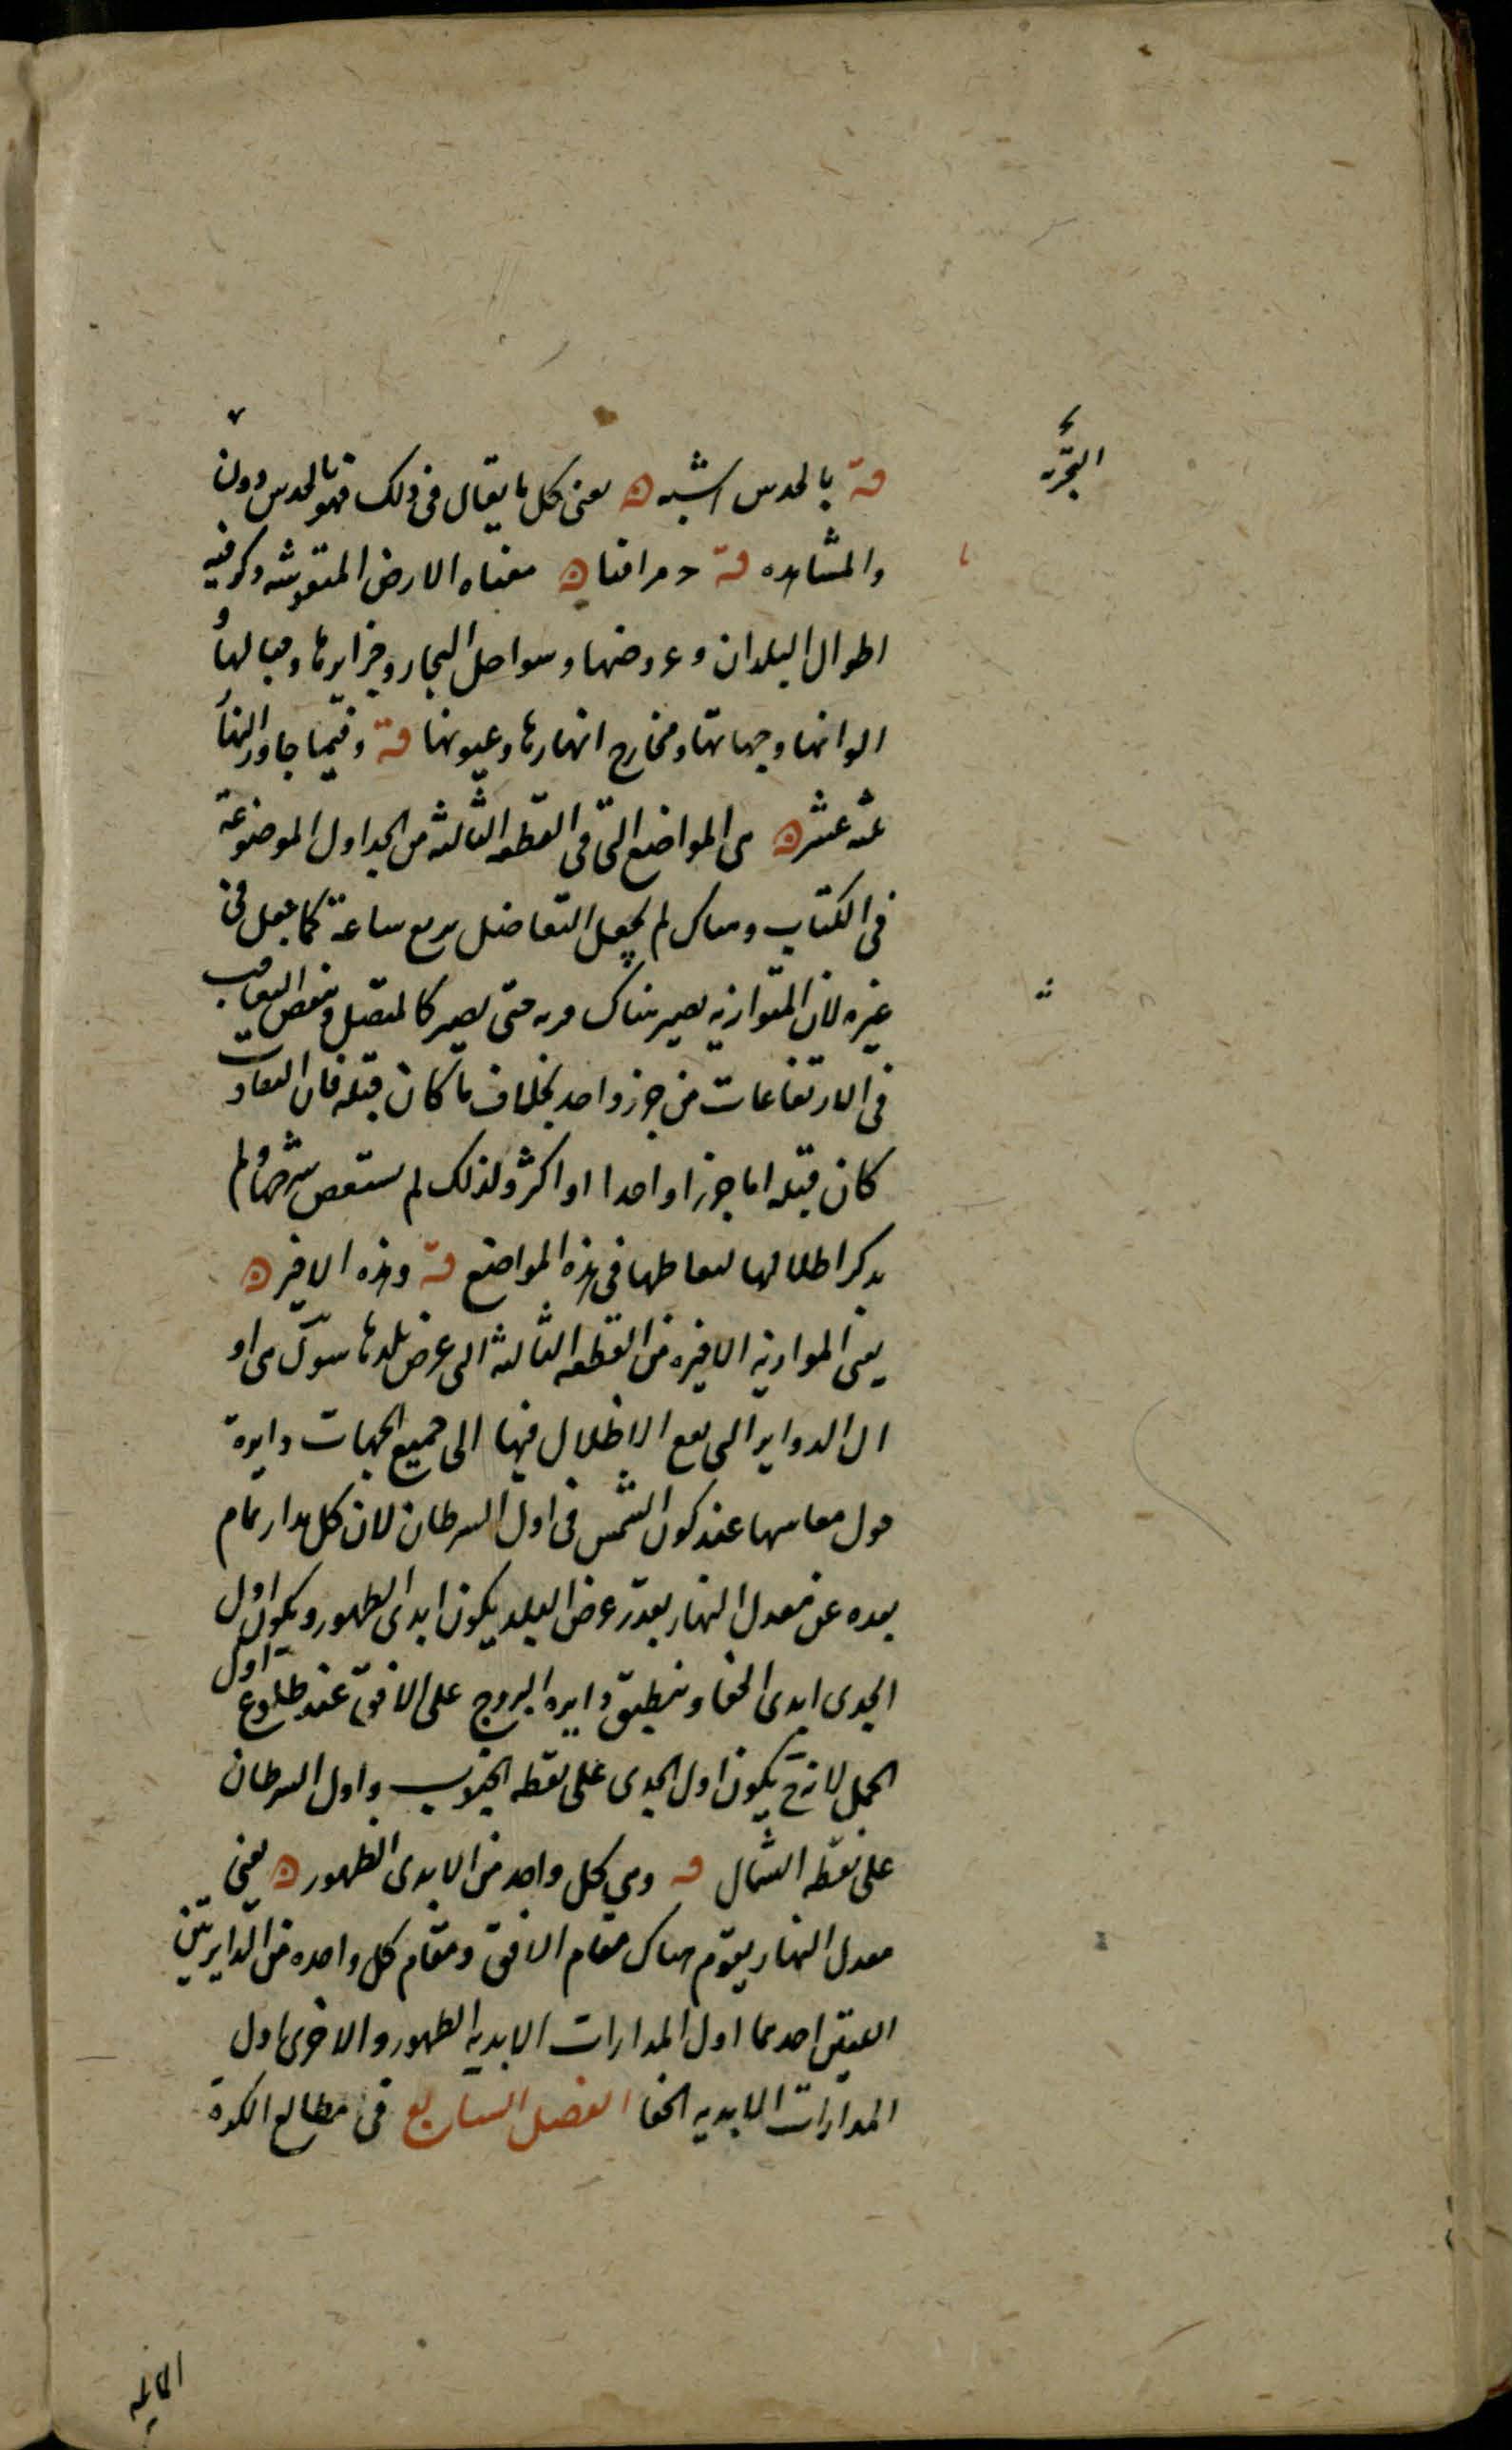 قه بالحدس اشبه ه يعنى كل ما يقال فى ذلك فهو بالحدس دون
التجربه
والمشاهده قه جغرافيا ه معناه الارض المنقوشه ذكر فيه
اطوال البلدان وعروضها وسواحل البحار وجزايرها وجبالها و
الوانها وجهاتها ومخارج انهارها وعيونها قه وفيما جاوز النها
عشر ه من المواضع التى فى القطعه الثالثه من الجداول الموضوعة
فى الكتاب وهناك لم يجعل التفاضل بربع ساعة كما جعل فى
غيره لان المتوازيه يصير هناك حتى يصير كالمتصل
فى الارتفاعات من جزو واحد بخلاف ما كان قبله فان التفاوت
كان قبله اما جزوا واحدا او اكثر ولذلك لم شرحها ولم
يذكر اطلالها فى هذه المواضع قه وهذه الاخيره
يعنى الموازيه الاخيره من القطعه الثالثه التى عرض بلدها
ان الدواير التى تقع الاظلال فيها الى جميع الجهات دايرة
حول مقايسها عند كون الشمس فى اول السرطان لان كل مدار تمام
بعده عن معدل النهار بقدر عرض البلد يكون ابدى الظهور ويكون اول
الجدى ابدى الخفا وينطبق دايره البروج على الافق عند طلوع اول
الحمل لانه ح يكون اول الجدى على نقطه الجنوب واول السرطان
على نقطه الشمال قه ومن كل واحد من الابدى الظهور ه يعنى
معدل النهار يقوم هناك مقام الافق ومقام كل واحده من الدايرتين
اللتين احدهما اول المدارات الابديه الظهور والاخرى اول
المدارات الابديه الخفا الفصل السابع فى مطالع الكرة
المايله